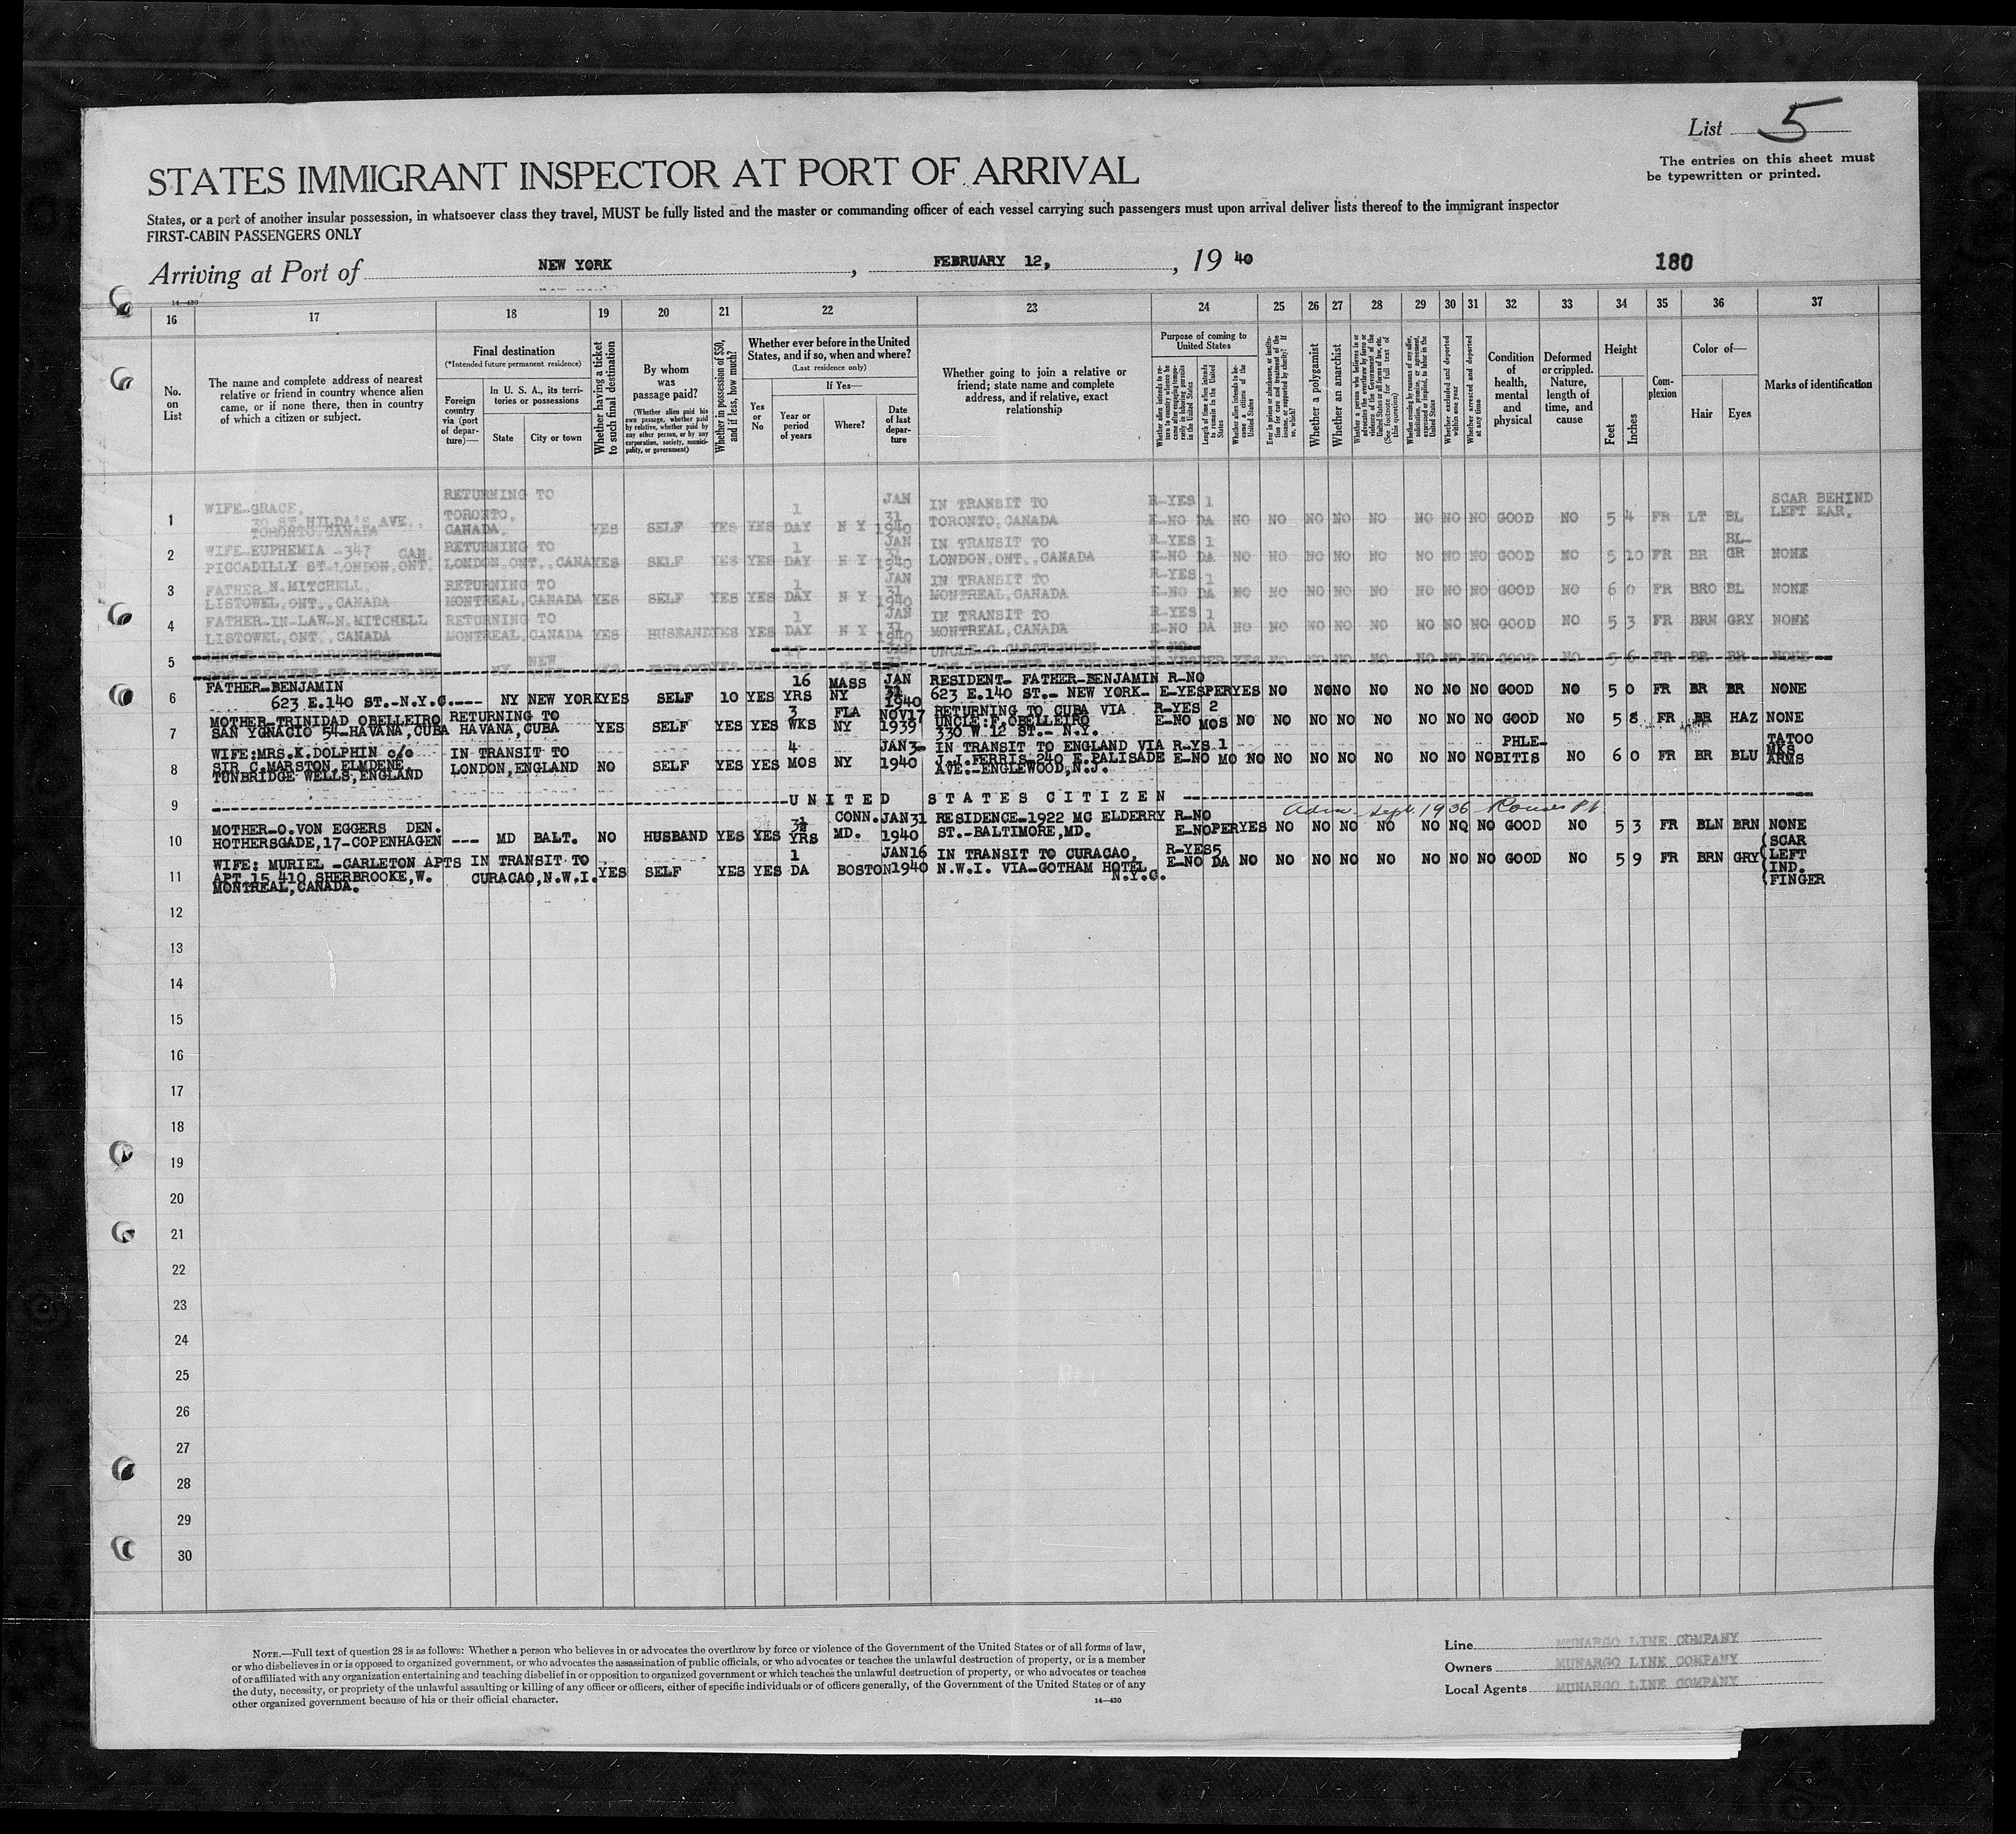 List 5
The entries on this sheet must
be typewritten or printed.
STATES IMMIGRANT INSPECTOR AT PORT OF ARRIVAL
States, or a port of another insular possession, in whatsoever class they travel, MUST be fully listed and the master or commanding officer of each vessel carrying such passengers must upon arrival deliver lists thereof to the immigrant inspector
FIRST-CABIN PASSENGERS ONLY
Arriving at Port of NEW YORK, FEBRUARY 12, 19 40
180
14-430
16 17 18 19 20 21 22 23 24 25 26 27 28 29 30 31 32 33 34 35 36 37
No. on List
The name and complete address of nearest relative or friend in country whence alien came, or if none there, then in country of which a citizen or subject.
Final destination
(*Intended future permanent residence)
Foreign country via (port of departure)—
In U. S. A., its territories or possessions
State
City or town
Whether having a ticket to such final destination
By whom was passage paid?
(Whether alien paid his own passage, whether paid by relative, whether paid by any other person, or by any corporation, society, municipality, or government)
Whether in possession of $50, and if less, how much?
Whether ever before in the United States, and if so, when and where?
(Last residence only)
Yes or No
If Yes—
Year or period of years
Where?
Date of last departure
Whether going to join a relative or friend; state name and complete address, and if relative, exact relationship
Purpose of coming to United States
Length of time alien intends to remain in the United States
Whether alien intends to become a citizen of the United States
Whether a polygamist
Whether an anarchist
Whether excluded and deported within one year
Whether arrested and deported at any time
Condition of health, mental and physical
Deformed or crippled. Nature, length of time, and cause
Height
Feet
Inches
Complexion
Color of—
Hair
Eyes
Marks of identification
1 WIFE-GRACE, 30 ST HILDA'S AVE., TORONTO, CANADA RETURNING TO TORONTO, CANADA. YES SELF YES YES 1 DAY N Y JAN 31 1940 IN TRANSIT TO TORONTO, CANADA R-YES E-NO 1 DA NO NO NO NO NO NO NO NO GOOD NO 5 4 FR LT BL SCAR BEHIND LEFT EAR.
2 WIFE EUPHEMIA -347 PICCADILLY ST-LONDON, ONT. CAN. RETURNING TO LONDON, ONT., CANA YES SELF YES YES 1 DAY N Y JAN 31 1940 IN TRANSIT TO LONDON, ONT., CANADA R-YES E-NO 1 DA NO NO NO NO NO NO NO NO GOOD NO 5 10 FR BR BL-GR NONE
3 FATHER N. MITCHELL, LISTOWEL, ONT., CANADA RETURNING TO MONTREAL, CANADA YES SELF YES YES 1 DAY N Y JAN 31 1940 IN TRANSIT TO MONTREAL, CANADA R-YES E-NO 1 DA NO NO NO NO NO NO NO NO GOOD NO 6 0 FR BRO BL NONE
4 FATHER-IN-LAW-N. MITCHELL LISTOWEL, ONT., CANADA RETURNING TO MONTREAL, CANADA YES HUSBAND YES YES 1 DAY N Y JAN 31 1940 IN TRANSIT TO MONTREAL, CANADA R-YES E-NO 1 DA NO NO NO NO NO NO NO NO GOOD NO 5 3 FR BRN GRY NONE
5 NY NEW YES YES YES 17 JAN UNCLE C. CARSTENSEN YES NO NO NO NO NO NO NO GOOD NO 5 6 FR BR BR NONE
6 FATHER-BENJAMIN 623 E.140 ST.-N.Y.C.---- NY NEW YORK YES SELF 10 YES 16 YRS MASS NY JAN 31 1940 RESIDENT- FATHER-BENJAMIN 623 E.140 ST.- NEW YORK- R-NO E-YES PER YES NO NO NO NO NO NO NO GOOD NO 5 0 FR BR BR NONE
7 MOTHER-TRINIDAD OBELLEIRO SAN YGNACIO 54-HAVANA, CUBA RETURNING TO HAVANA, CUBA YES SELF YES YES 3 WKS FLA NY NOV17 1939 RETURNING TO CUBA VIA UNCLE: F. OBELLEIRO 330 W 12 ST.- N.Y. R-YES E-NO 2 MOS NO NO NO NO NO NO NO NO GOOD NO 5 8 FR BR HAZ NONE
8 WIFE: MRS. K. DOLPHIN c/o SIR C. MARSTON, ELMDENE, TUNBRIDGE WELLS, ENGLAND IN TRANSIT TO LONDON, ENGLAND NO SELF YES YES 4 MOS NY JAN 3- 1940 IN TRANSIT TO ENGLAND VIA J.J. FERRIS-240 E. PALISADE AVE.-ENGLEWOOD, N.J. R-YS E-NO 1 MO NO NO NO NO NO NO NO NO PHLE-BITIS NO 6 0 FR BR BLU TATOO MKS ARMS
9 UNITED STATES CITIZEN
Adm. Sept. 1936 Rouses Pt.
10 MOTHER-O. VON EGGERS DEN. HOTHERSGADE, 17-COPENHAGEN --- MD BALT. NO HUSBAND YES YES 3½ YRS CONN. MD. JAN31 1940 RESIDENCE-1922 MC ELDERRY ST.-BALTIMORE, MD. R-NO E-NO PER YES NO NO NO NO NO NO NO GOOD NO 5 3 FR BLN BRN NONE
11 WIFE: MURIEL -CARLETON APTS APT 15 410 SHERBROOKE, W. MONTREAL, CANADA. IN TRANSIT TO CURACAO, N.W.I. YES SELF YES YES 1 DA BOSTON JAN16 1940 IN TRANSIT TO CURACAO, N.W.I. VIA-GOTHAM HOTEL N.Y.C. R-YES E-NO 5 DA NO NO NO NO NO NO NO NO GOOD NO 5 9 FR BRN GRY (SCAR (LEFT (IND. (FINGER
12
13
14
15
16
17
18
19
20
21
22
23
24
25
26
27
28
29
30
NOTE.—Full text of question 28 is as follows: Whether a person who believes in or advocates the overthrow by force or violence of the Government of the United States or of all forms of law,
or who disbelieves in or is opposed to organized government, or who advocates the assassination of public officials, or who advocates or teaches the unlawful destruction of property, or is a member
of or affiliated with any organization entertaining and teaching disbelief in or opposition to organized government or which teaches the unlawful destruction of property, or who advocates or teaches
the duty, necessity, or propriety of the unlawful assaulting or killing of any officer or officers, either of specific individuals or of officers generally, of the Government of the United States or of any
other organized government because of his or their official character.
14-430
Line MUNARGO LINE COMPANY
Owners MUNARGO LINE COMPANY
Local Agents MUNARGO LINE COMPANY